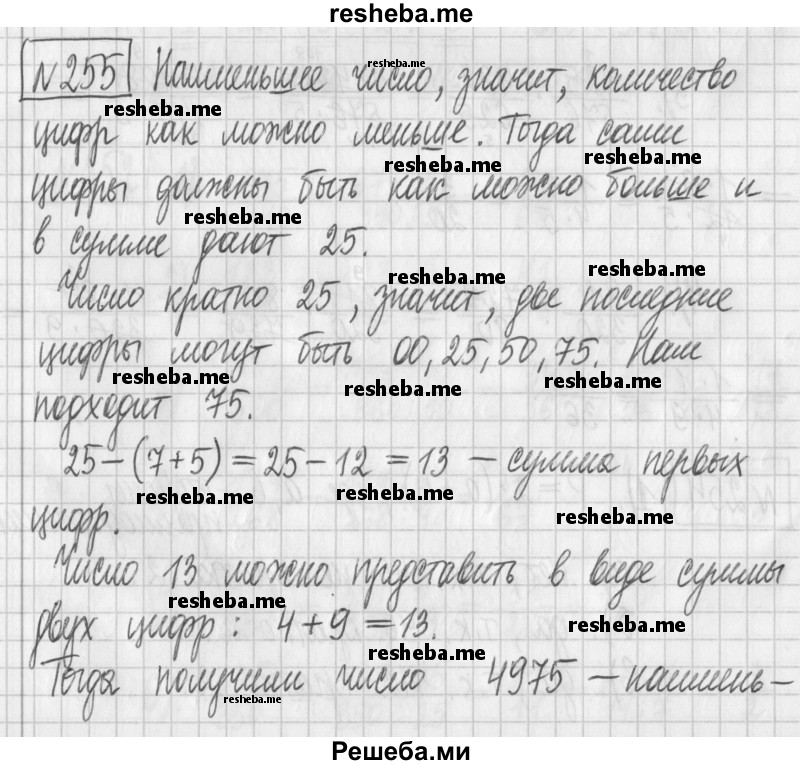 resheba.me
№255 Наименьшее число, значит, количество
resheba.me
resheba.me
цифр как можно меньше. Тогда сами
resheba.me
resheba.me
цифры должны быть как можно больше и
resheba.me
в сумме дают 25.
resheba.me
resheba.me
Число кратно 25, значит, две последние
цифры могут быть 00, 25, 50, 75. Нам
resheba.me
resheba.me
resheba.me
подходит 75.
25-(7+5)=25-12=13 - сумма первых
resheba.me
resheba.me
resheba.me
цифр.
Число 13 можно представить в виде суммы
resheba.me
resheba.me
двух цифр: 4+9=13.
resheba.me
Тогда получили число 4975 - наимень-
resheba.me
Решеба.ми